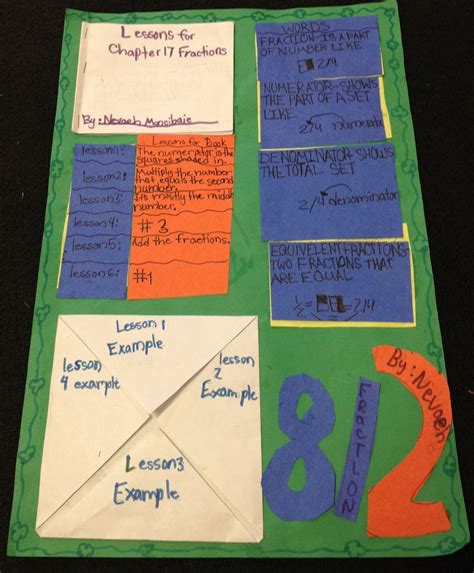 Lessons for
Chapter 17 Fractions
By: Nevaeh
Lessons for Book
lesson1:
The numerator is the
squares shaded in.
lesson2:
Multiply the number
that equals the second
number.
lesson3:
Its mostly the middle
number.
lesson4:
#3
lesson5:
Add the fractions.
lesson6:
#1
WORDS
FRACTION-IS A PART
OF NUMBER LIKE
2/4
NUMERATOR-SHOWS
THE PART OF A SET
LIKE
2/4 numerator
DENOMINATOR-SHOWS
THE TOTAL SET
2/4 denominator
EQUIVELENT FRACTIONS-
TWO FRACTIONS THAT
ARE EQUAL
1/2 = = 2/4
Lesson 1
Example
lesson
4 example
lesson
2
Example
Lesson3
Example
8
FRACTION
2
By: Nevaeh